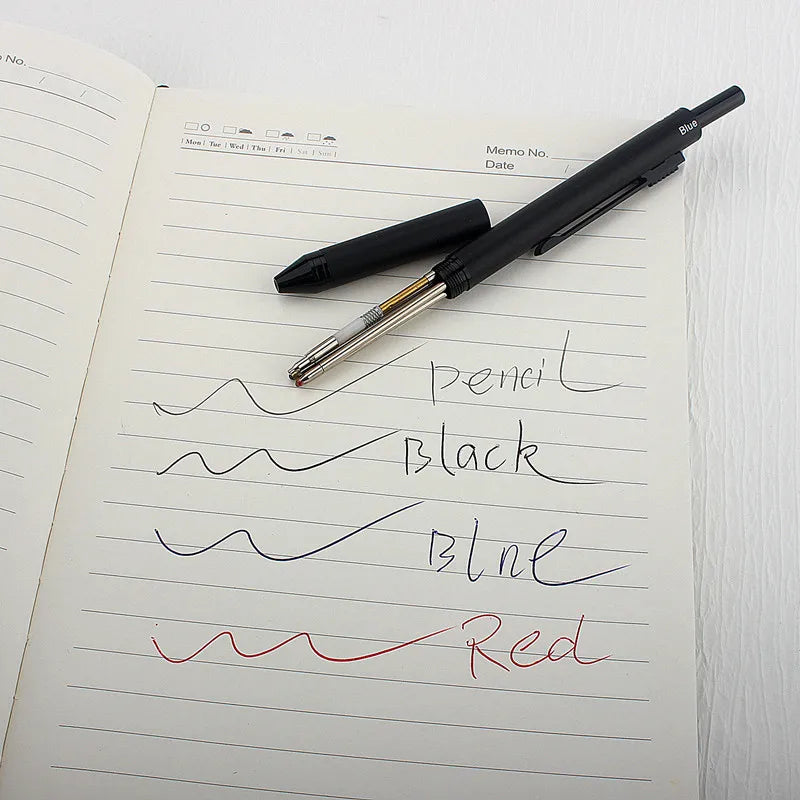 No.
Mon Tue Wed Thu Fri Sat Sun
Memo No.
Date
Blue
Pencil
Black
Blne
Red